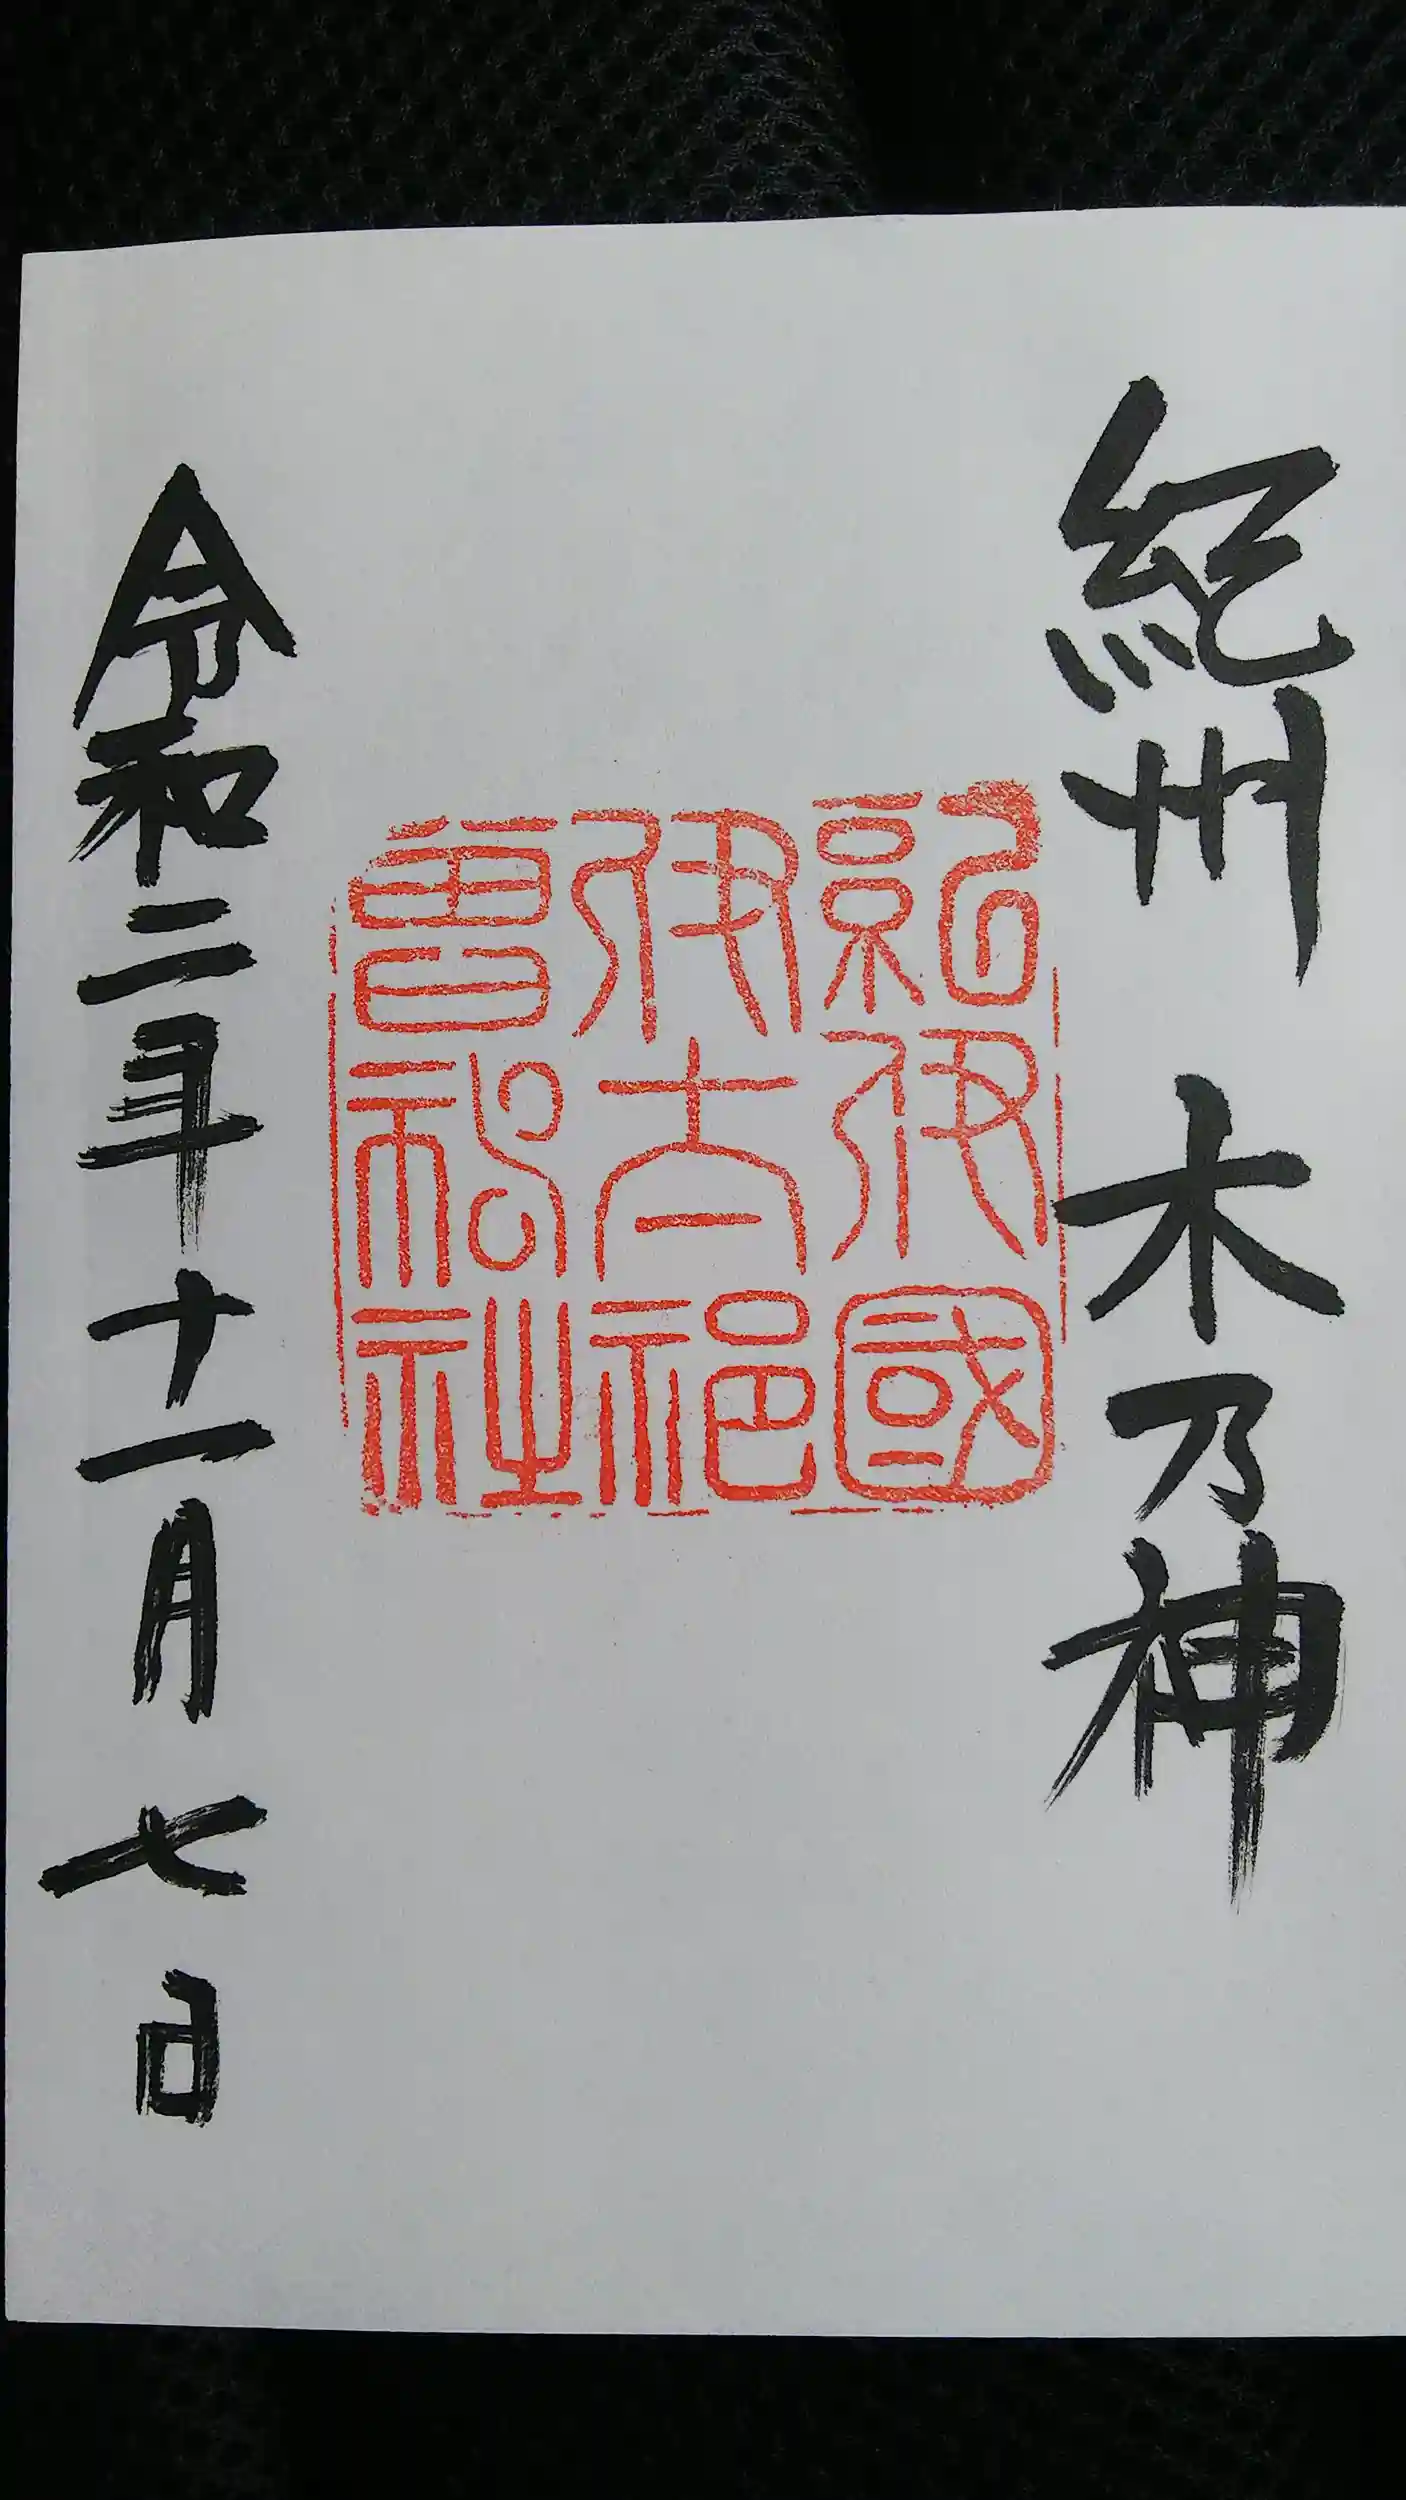 紀州 木乃神
紀伊國
伊太祁
曾神社
令和二年十一月七日